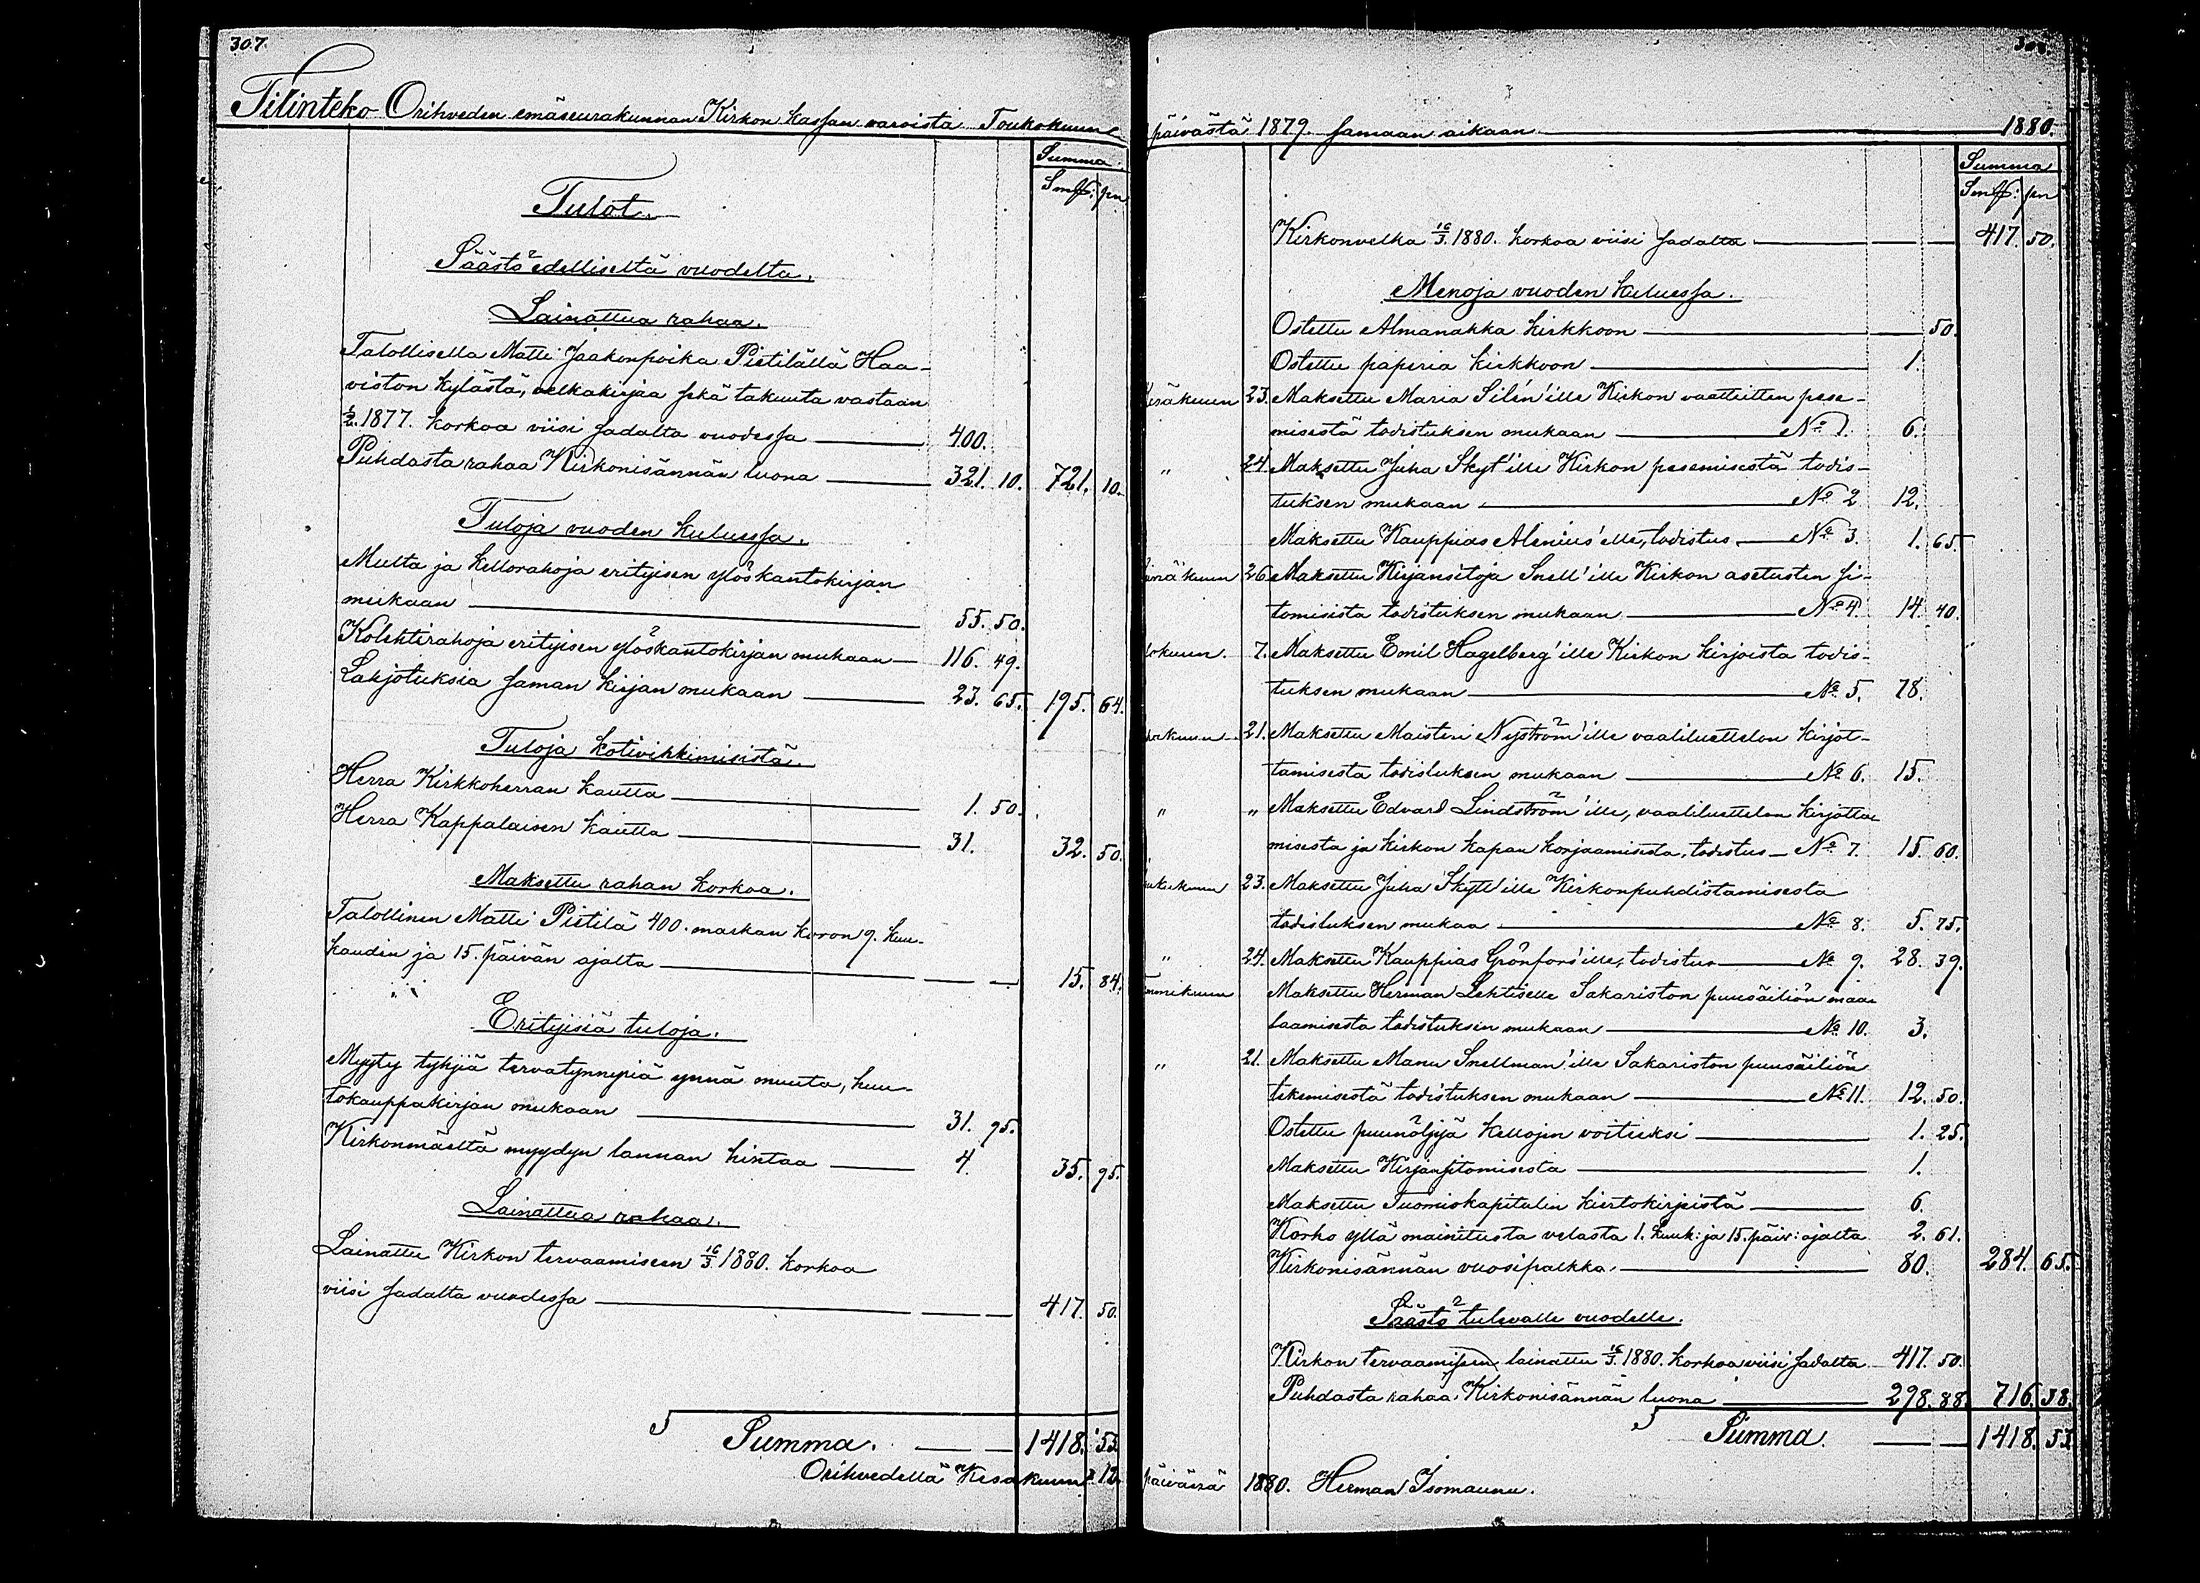 307.
Tilinteko Orihveden emäseurakunnan Kirkon kassan varoista Toukokuun
Summa
Smf: pn
Tulot.
Säästö edelliseltä vuodelta.
Lainattua rahaa.
Talollisella Matti Jaakonpoika Pietilällä Haa-
viston kylästä, velkakirjaa sekä takuuta vastaan
1/2 1877. korkoa viisi sadalta vuodessa — 400.
Puhdasta rahaa Kirkonisännän luona — 321. 10. 721. 10.
Tuloja vuoden kuluessa.
Multa ja kellorahoja erityisen ylöskantokirjan
mukaan — 55. 50.
Kolehtirahoja erityisen ylöskantokirjan mukaan — 116. 49.
Lahjotuksia saman kirjan mukaan — 23. 65. 195. 64.
Tuloja kotivihkimisistä.
Herra Kirkkoherran kautta — 1. 50.
Herra Kappalaisen kautta — 31. 32. 50.
Maksettu rahan korkoa.
Talollinen Matti Pietilä 400. markan koron 9. kuu-
kauden ja 15. päivän ajalta — 15. 84.
Erityisiä tuloja.
Myyty tyhjiä tervatynnyriä ynnä muuta, huu-
tokauppakirjan mukaan — 31. 95.
Kirkonmäeltä myydyn lannan hintaa — 4. 35. 95.
Lainattua rahaa.
Lainattu Kirkon tervaamiseen 16/3 1880. korkoa
viisi sadalta vuodessa — 417. 50.
Summa. — 1418. 53.
Orihvedellä Kesäkuun 12
päivästä 1879. samaan aikaan 1880.
Summa
Smf: pn
Kirkonvelka 16/3 1880. korkoa viisi sadalta — 417. 50.
Menoja vuoden kuluessa.
Ostettu Almanakka kirkkoon — 50.
Ostettu paperia kirkkoon — 1.
Kesäkuun 23. Maksettu Maria Silén'ille Kirkon vaatteitten pese-
misestä todistuksen mukaan — No 1. 6.
„ 24. Maksettu Juha Skyt'ille Kirkon pesemisestä todis-
tuksen mukaan — No 2 12.
Maksettu Kauppias Alenius'elle, todistus — No 3. 1. 65.
26. Maksettu Kirjansitoja Snell'ille Kirkon asetusten si-
tomisista todistuksen mukaan — No 4. 14. 40.
7. Maksettu Emil Hagelberg'ille Kirkon kirjoista todis-
tuksen mukaan — No 5. 78.
21. Maksettu Maisteri Nyström'ille vaaliluettelon kirjot-
tamisesta todistuksen mukaan — No 6. 15.
„ „ Maksettu Edvard Lindström'ille, vaaliluettelon kirjotta-
misesta ja kirkon kapan korjaamisesta, todistus — No 7. 15. 60.
23. Maksettu Juha Skytt'ille Kirkonpuhdistamisesta
todistuksen mukaa — No 8. 5. 75.
„ 24. Maksettu Kauppias Grönfors'ille, todistus — No 9. 28. 39.
Maksettu Herman Lehtiselle Sakariston puusäiliön maa-
laamisesta todistuksen mukaan — No 10. 3.
„ 21. Maksettu Manu Snellman'ille Sakariston puusäiliön
tekemisestä todistuksen mukaan — No 11. 12. 50.
Ostettu puunöljyä kellojen voiteeksi — 1. 25.
Maksettu Kirjansitomisesta — 1.
Maksettu Tuomiokapitulin kiertokirjeistä — 6.
Korko yllä mainitusta velasta 1. kuuk: ja 15. päiv: ajalta 2. 61.
Kirkonisännän vuosipalkka. — 80. 284. 65.
Säästö tulevalle vuodelle.
Kirkon tervaamiseen lainattu 16/3 1880. korkoa viisi sadalta 417. 50.
Puhdasta rahaa Kirkonisännän luona — 298. 88. 716. 38.
Summa. — 1418. 53.
päivänä 1880. Herman Isomaunu.